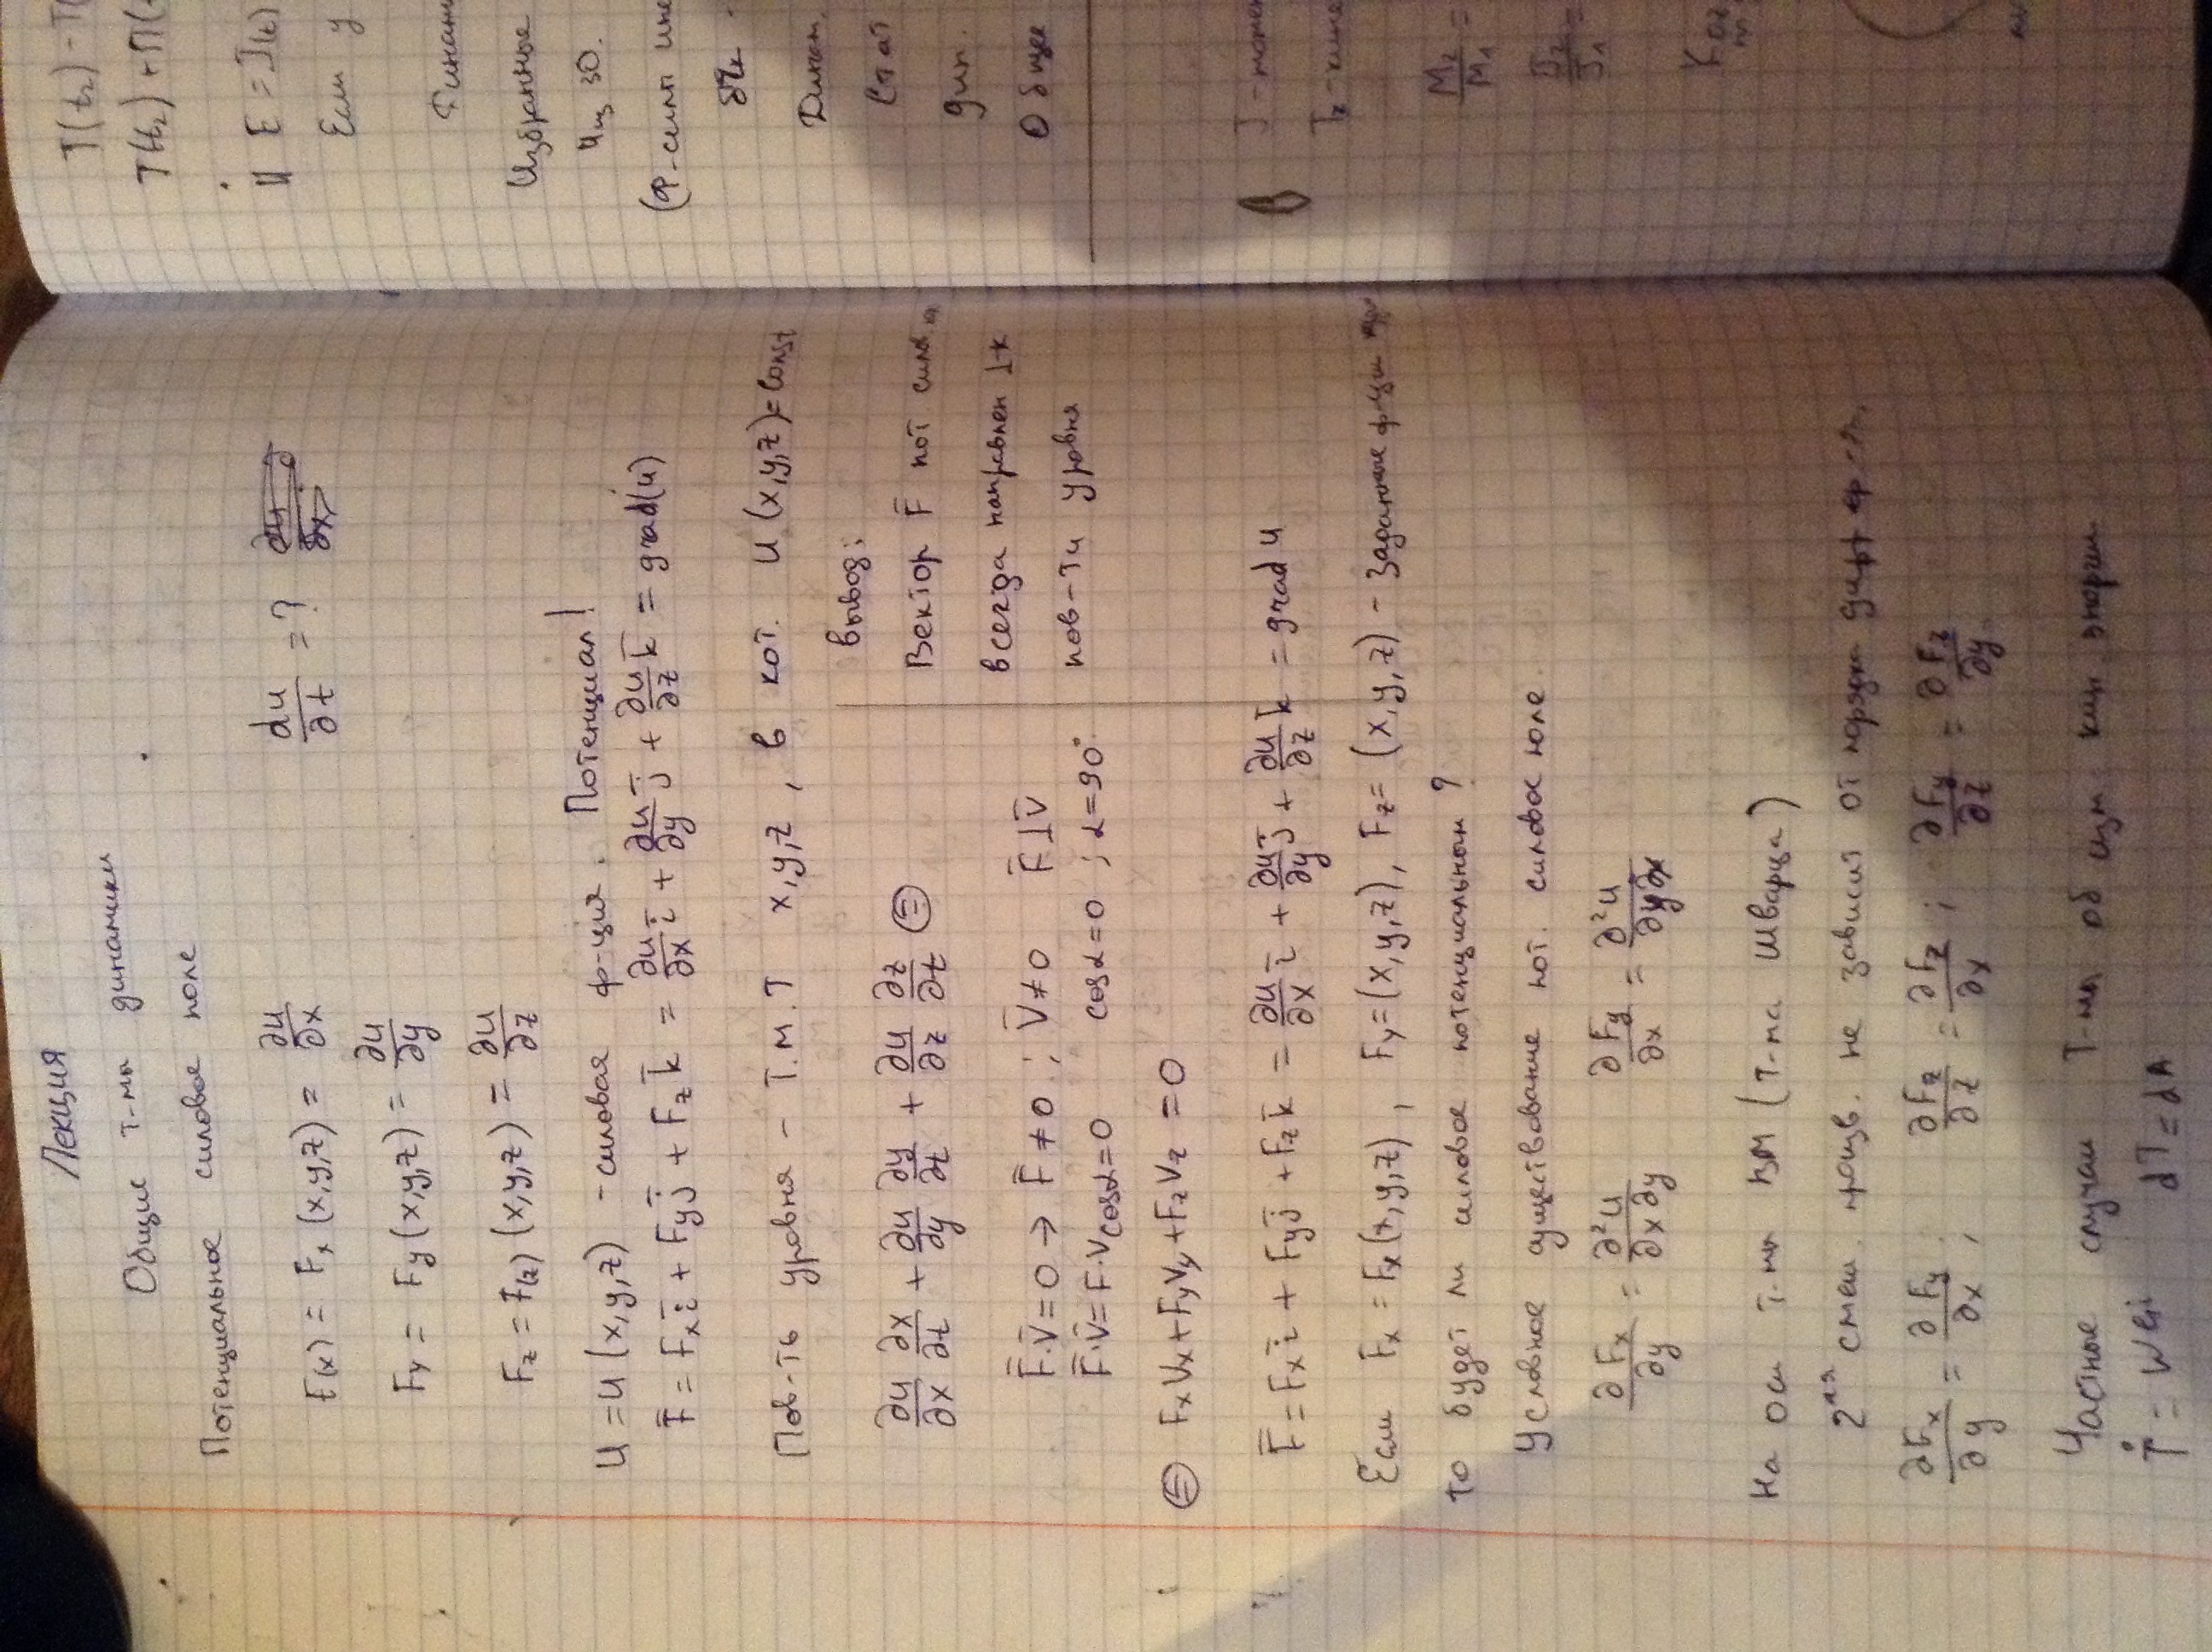 Лекция
Общие т-мы динамики
Потенциальное силовое поле
F(x) = Fx (x,y,z) = ∂u/∂x    du/∂t = ?
Fy = Fy (x,y,z) = ∂u/∂y
Fz = F(z) (x,y,z) = ∂u/∂z
U = U (x,y,z) - силовая ф-ция. Потенциал!
F̄ = Fx ī + Fy j̄ + Fz k̄ = ∂u/∂x ī + ∂u/∂y j̄ + ∂u/∂z k̄ = grad(u)
Пов-ть уровня - Г.М.Т x,y,z, в кот. U (x,y,z) = const
∂u/∂x ∂x/∂t + ∂u/∂y ∂y/∂t + ∂u/∂z ∂z/∂t (=)
F̄·V̄ = 0 → F̄ ≠ 0 ; V̄ ≠ 0 F̄ ⊥ V̄
F̄·V̄ = F·V cosα = 0 cosα = 0 ; α = 90°
(=) FxVx + FyVy + FzVz = 0
вывод:
Вектор F̄ пот. сил.
всегда направлен ⊥ к
пов-ти уровня
F̄ = Fx ī + Fy j̄ + Fz k̄ = ∂u/∂x ī + ∂u/∂y j̄ + ∂u/∂z k̄ = grad u
Если Fx = Fx (x,y,z), Fy = (x,y,z), Fz = (x,y,z) - заданные ф-ции
то будет ли силовое потенциальным ?
Условное существование пот. силовое поле.
∂Fx/∂y = ∂²u/∂x∂y    ∂Fy/∂x = ∂²u/∂y∂x
На осн т-мы ВМ (Т-ма Шварца)
2ная смеш. произв. не зависит от порядка дифф-
∂Fx/∂y = ∂Fy/∂x ; ∂Fz/∂z = ∂Fz/∂x ; ∂Fy/∂z = ∂Fz/∂y
Частные случаи Т-мы об изм. кин. энергии
Ṫ = Wei    dT = dA
T(t2) - T(
T(t2) + П(
И E =
Если у
Избранные
Из 30.
Динам.
Стат
дин.
Общее
В
J - момен
M2/M1 =
J2/J1 =